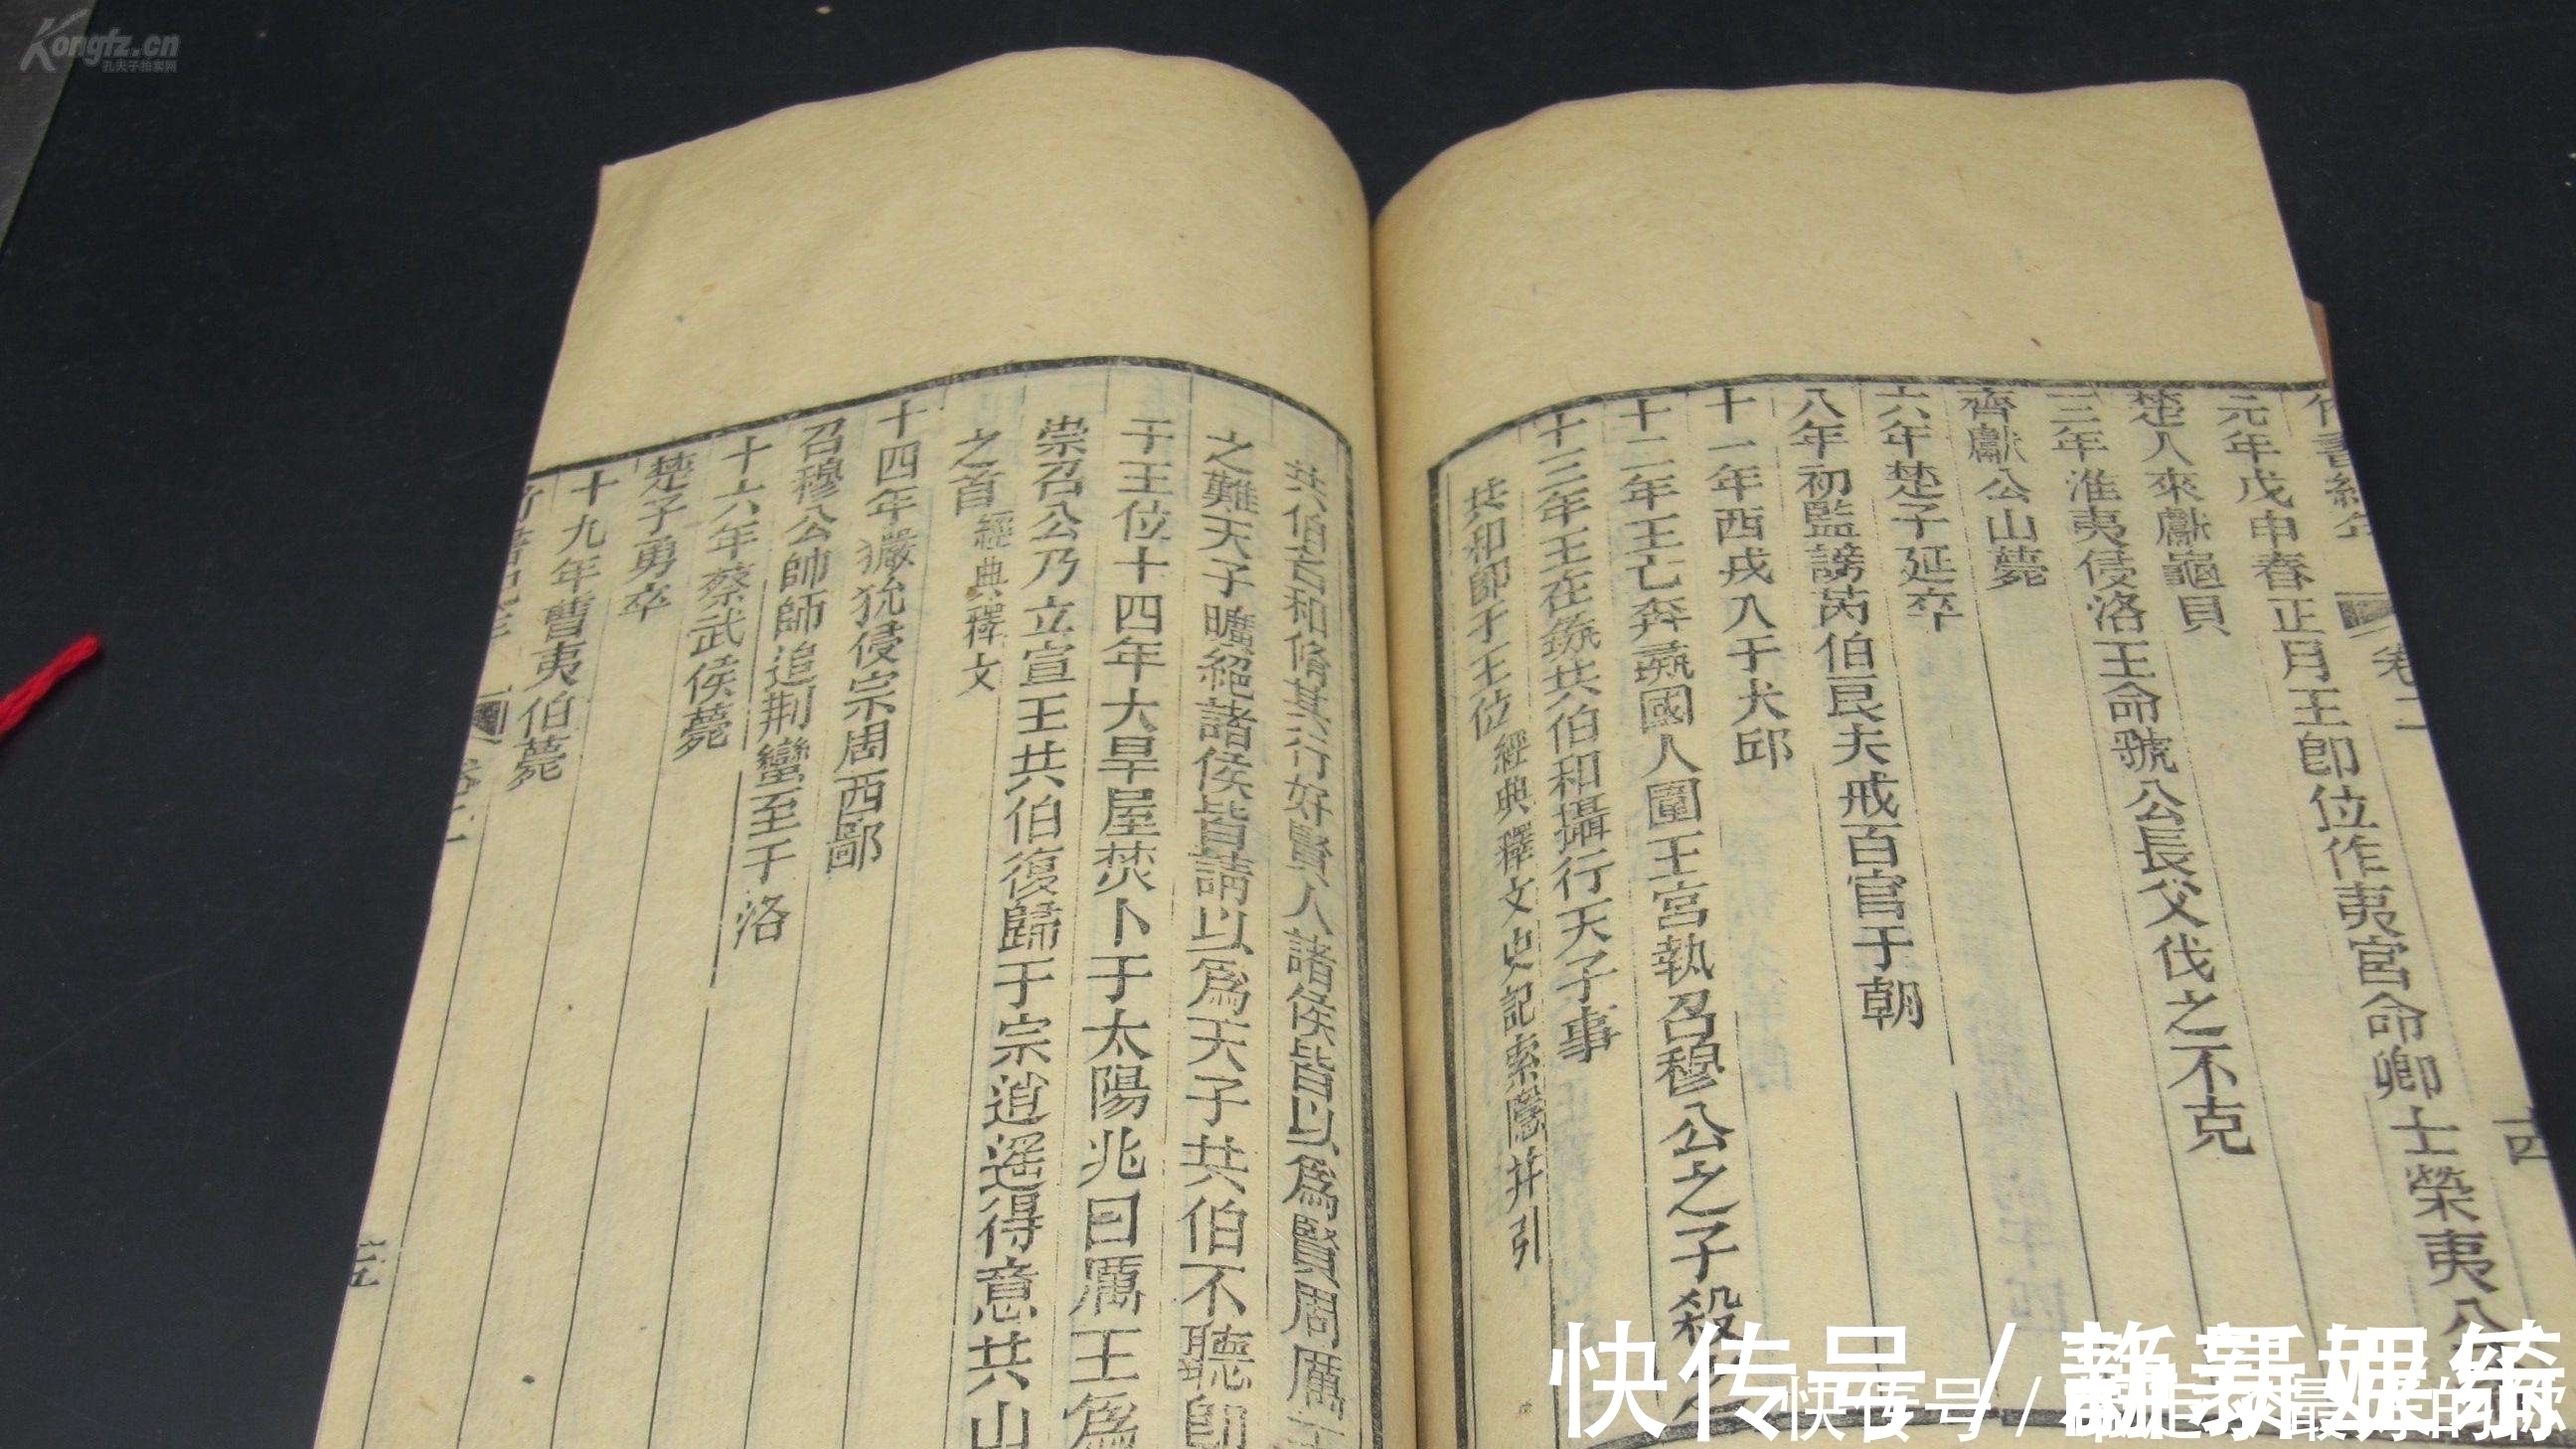 Kongfz.cn
孔夫子拍卖网
卷二
元年戊申春正月王卽位作夷宮命卿士榮夷
楚人來獻龜貝
三年淮夷侵洛王命虢公長父伐之不克
齊獻公山薨
六年楚子延卒
八年初監謗芮伯艮夫戒百官于朝
十一年西戎入于犬邱
十二年王亡奔彘國人圍王宮執召穆公之子殺
十三年王在彘共伯和攝行天子事
共和卽于王位經典釋文史記索隱并引
共伯名和脩其行好賢人諸侯皆以爲賢周厲王
之難天子曠絕諸侯皆請以爲天子共伯不聽卽
于王位十四年大旱屋焚卜于太陽兆曰厲王爲
崇召公乃立宣王共伯復歸于宗逍遥得意共山
之首經典釋文
十四年玁狁侵宗周西鄙
召穆公帥師追荆蠻至于洛
十六年蔡武侯薨
楚子勇卒
十九年曹夷伯薨
快传号/
快传号/